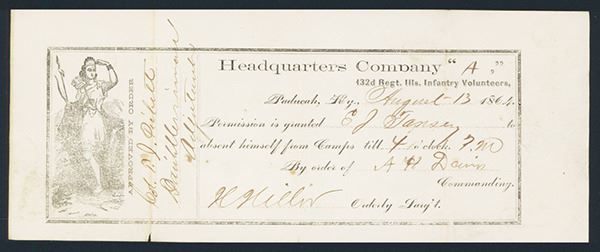 Headquarters Company "A"
132d Regt. Ills. Infantry Volunteers,
Paducah, Ky., August 13 1864.
Permission is granted E J Tansey to
absent himself from Camps till 4 o'clock P.M
By order of A H Davis
Commanding.
Orderly Serg't.
APPROVED BY ORDER
Col. T J Pickett
Adjutant